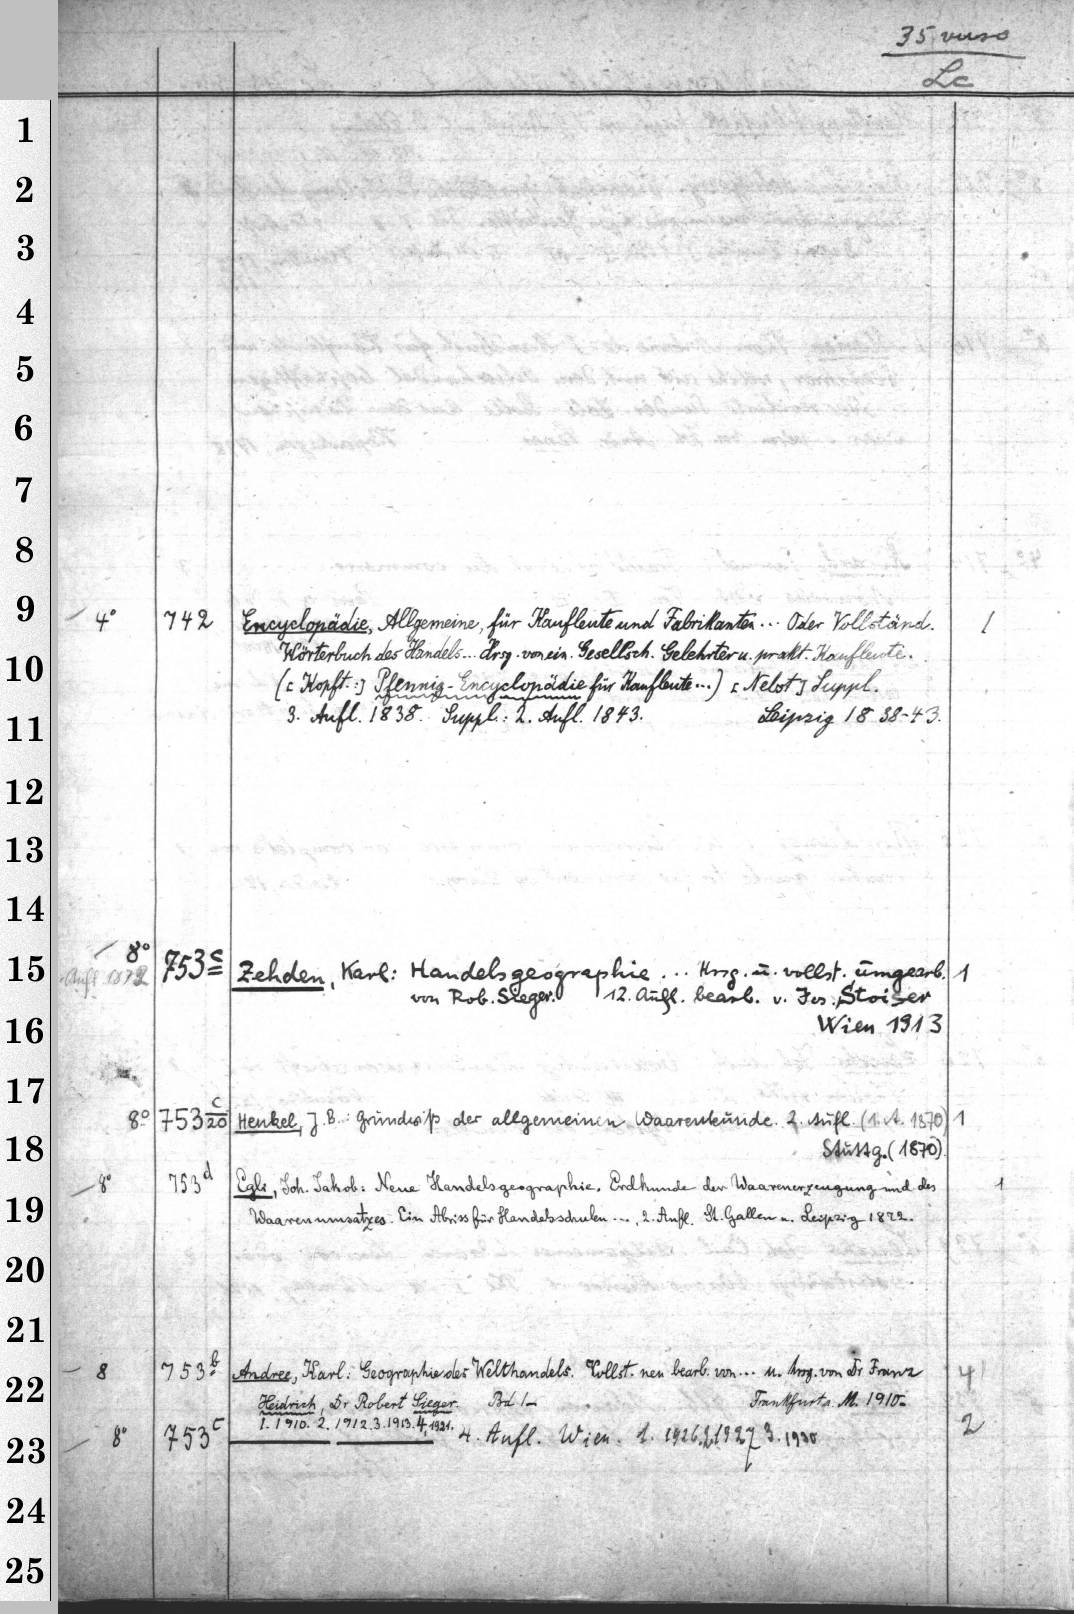 35 verso
Lc
1
2
3
4
5
6
7
8
9
4° 742 Encyclopädie, Allgemeine, für Kaufleute und Fabrikanten ... Oder Vollständ. 1
Wörterbuch des Handels... Hrsg. von ein. Gesellsch. Gelehrter u. prakt. Kaufleute.
10
([Kopft.:] Pfennig-Encyclopädie für Kaufleute...) [Nebst] Suppl.
3. Aufl. 1838. Suppl.: 2. Aufl. 1843. Leipzig 1838-43.
11
12
13
14
15
8° 753e Zehden, Karl: Handelsgeographie ... Hrsg. u. vollst. umgearb. 1
von Rob. Sieger. 12. Aufl. bearb. v. Jos. Stoiser
16
Wien 1913
17
8° 753 c/20 Henkel, J. B.: Grundriß der allgemeinen Waarenkunde. 2. Aufl. (1. A. 1870) 1
18
Stuttg. (1870)
8° 753d Egli, Joh. Jakob: Neue Handelsgeographie. Erdkunde der Waarenerzeugung und des 1
19
Waarenumsatzes. Ein Abriss für Handelsschulen ..., 2. Aufl. St. Gallen u. Leipzig 1872.
20
21
8 753b Andree, Karl: Geographie des Welthandels. Vollst. neu bearb. von ... u. hrsg. von Dr Franz 4
22
Heidrich, Dr Robert Sieger. Bd 1- Frankfurt a. M. 1910-
1. 1910. 2. 1912. 3. 1913. 4. 1921.
8° 753c 4. Aufl. Wien. 1. 1926, 2. 1927, 3. 1930 2
23
24
25